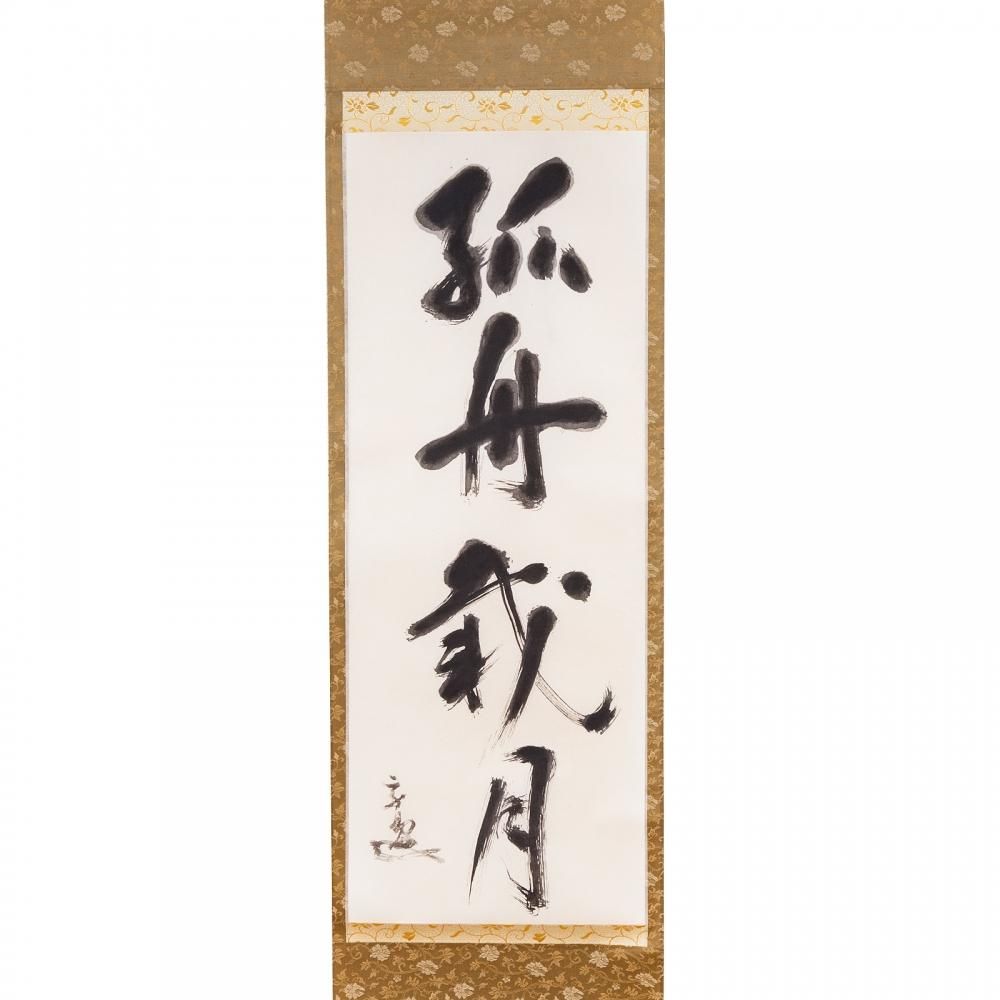 孤舟載月